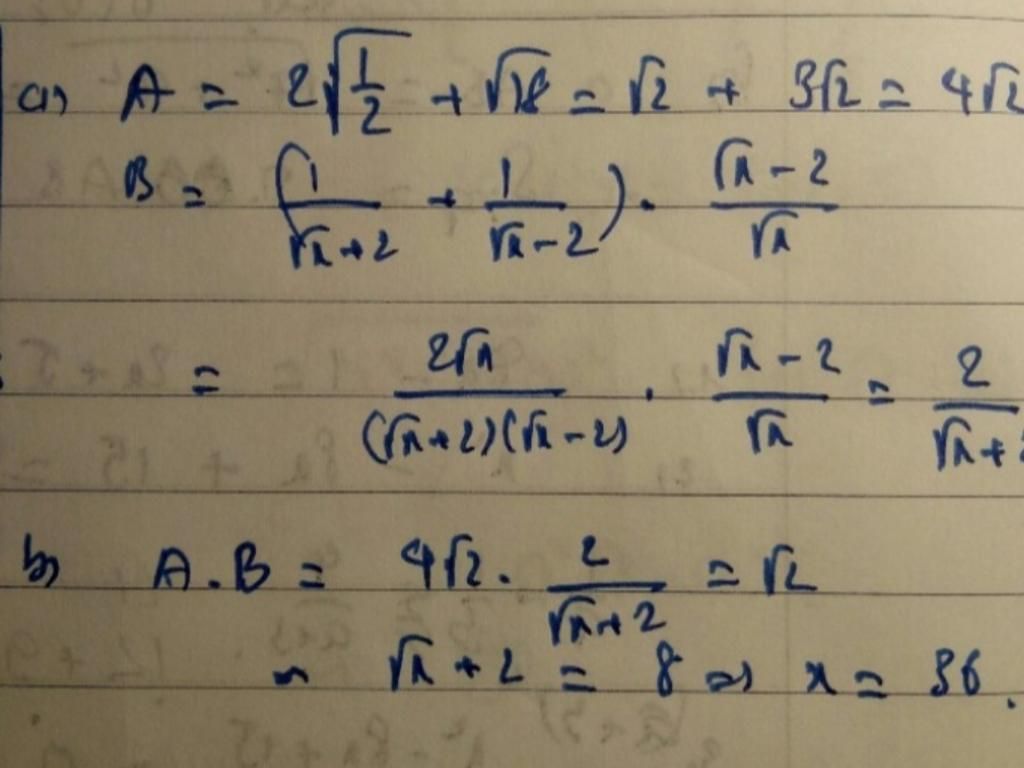 a) A = 2√(1/2) + √18 = √2 + 3√2 = 4√2
B = (1/(√x+2) + 1/(√x-2)) . (√x-2)/√x
= 2√x/((√x+2)(√x-2)) . (√x-2)/√x = 2/(√x+2
b) A.B = 4√2 . 2/(√x+2) = √2
√x + 2 = 8 => x = 36.